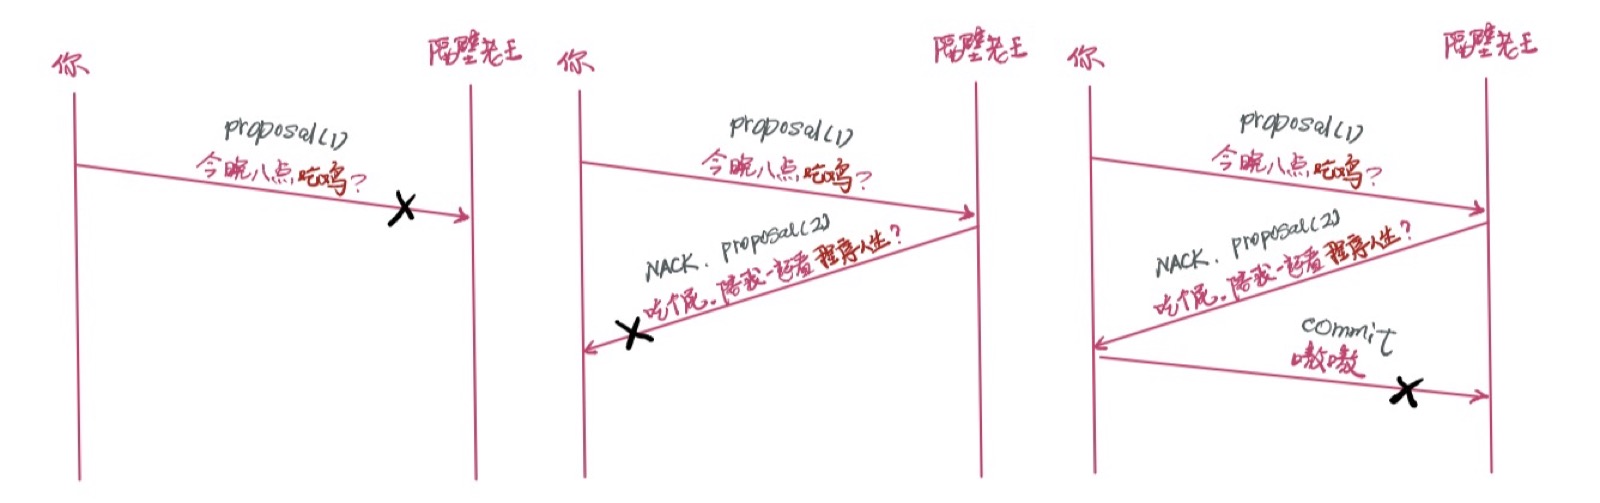 你
隔壁老王
proposal(1)
今晚八点吃鸡?
你
隔壁老王
proposal(1)
今晚八点吃鸡?
NACK. proposal(2)
吃个屁.陪我一起看程序人生?
你
隔壁老王
proposal(1)
今晚八点吃鸡?
NACK. proposal(2)
吃个屁.陪我一起看程序人生?
commit
嗷嗷